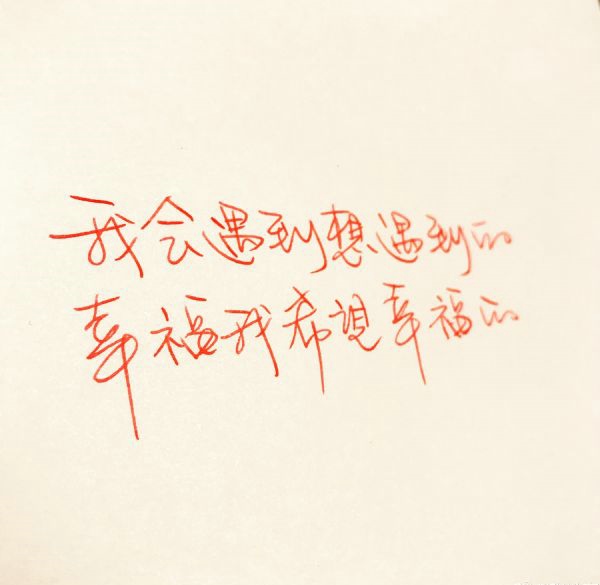 我会遇到想遇到的
幸福我希望幸福的